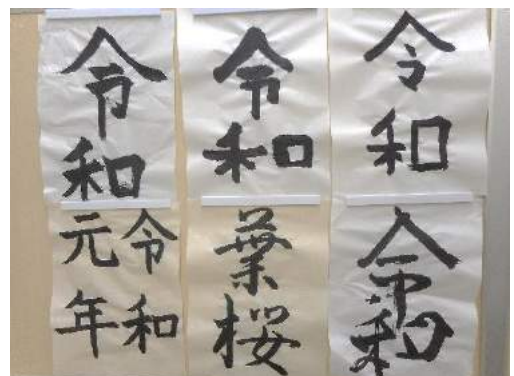 令和
令和
令和
令和
元年
葉桜
令和